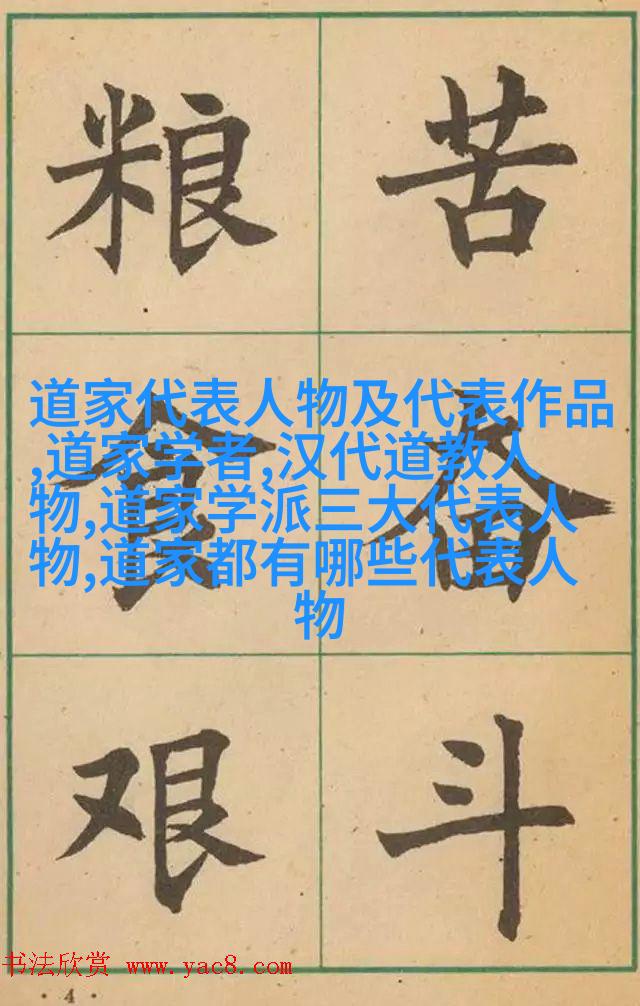 粮食艰
苦奋斗
道家代表人物及代表作品
,道家学者,汉代道教人
物,道家学派三大代表人
物,道家都有哪些代表人
物
书法欣赏 www.yac8.com
· 4 ·